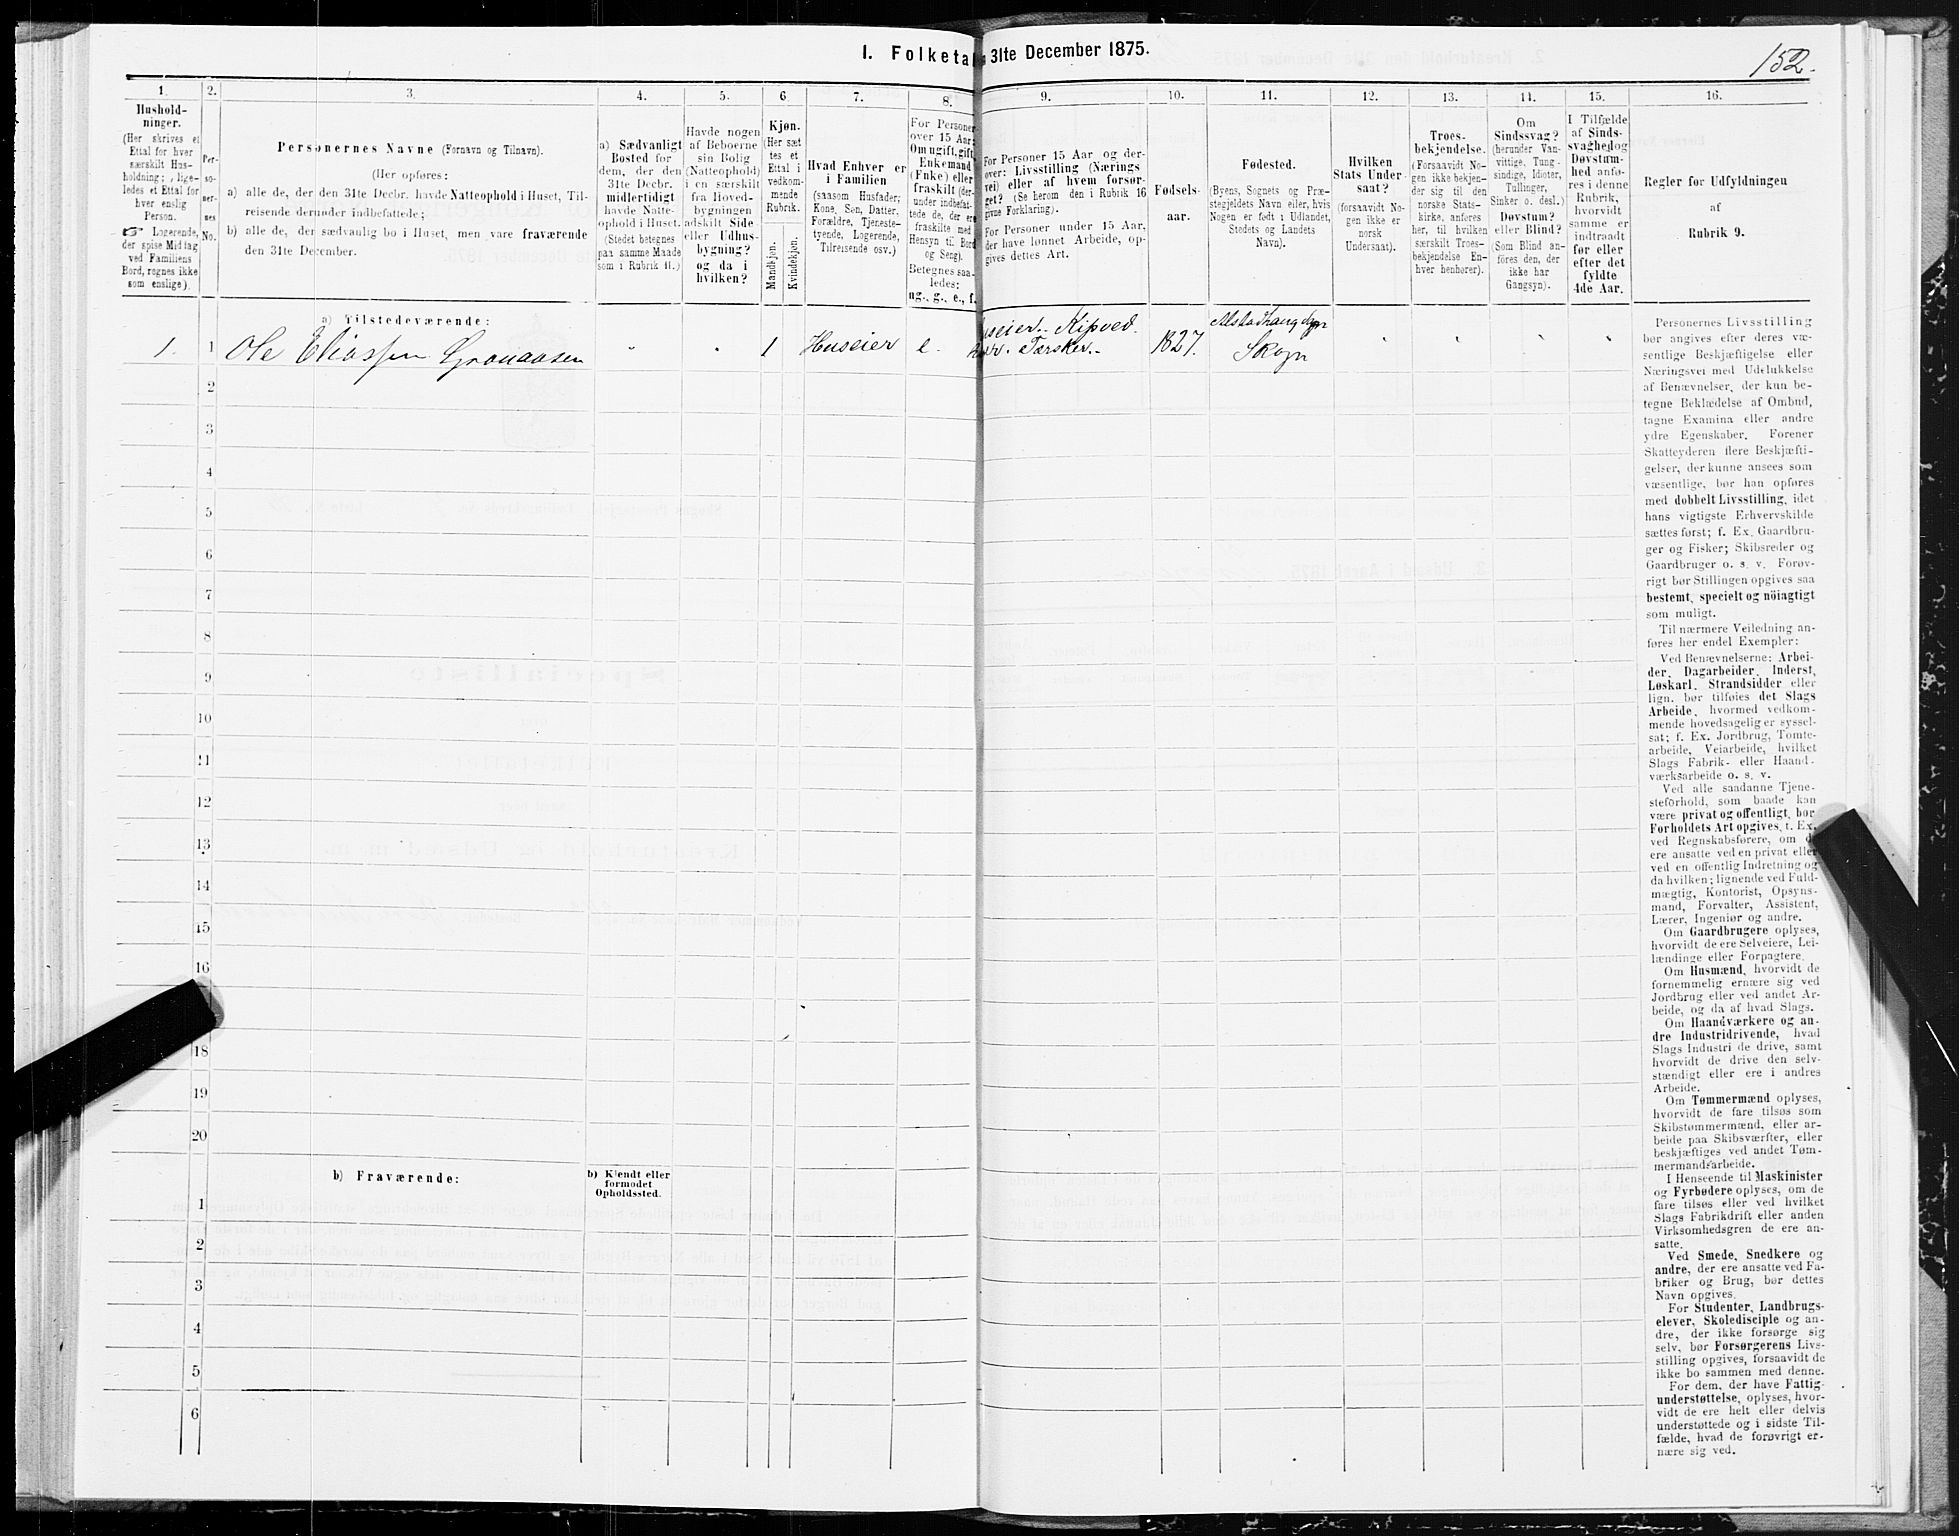 I. Folketal 31te December 1875.
152.
1. 2. 3. 4. 5. 6. 7. 8. 9. 10. 11. 12. 13. 14. 15. 16.
Hushold-
ninger.
(Her skrives et
Ettal for hver
særskilt Hus-
holdning; lige-
ledes et Ettal for
hver enslig
Person.
Logerende,
der spise Middag
ved Familiens
Bord, regnes ikke
som enslige).
Per-
so-
ner-
nes
No.
Personernes Navne (Fornavn og Tilnavn).
(Her opføres:
a) alle de, der den 31te Decbr. havde Natteophold i Huset, Til-
reisende derunder indbefattede;
b) alle de, der sædvanlig bo i Huset, men vare fraværende
den 31te December.
a) Sædvanligt
Bosted for
dem, der den
31te Decbr.
midlertidigt
havde Natte-
ophold i Huset.
(Stedet betegnes
paa samme Maade
som i Rubrik 11.)
Havde nogen
af Beboerne
sin Bolig
(Natteophold)
i en særskilt
fra Hoved-
bygningen
adskilt Side-
eller Udhus-
bygning?
og da i
hvilken?
Kjøn.
(Her sæt-
tes et
Ettal i
vedkom-
mende
Rubrik.
Mandkjøn.
Kvindekjøn.
Hvad Enhver er
i Familien
(saasom Husfader,
Kone, Søn, Datter,
Forældre, Tjeneste-
tyende, Logerende,
Tilreisende osv.)
For Personer
over 15 Aar:
Om ugift, gift,
Enkemand
(Enke) eller
fraskilt (der-
under indbefat-
tede de, der ere
fraskilte med
Hensyn til Bord
og Seng).
Betegnes saa-
ledes:
ug., g., e., f.
For Personer 15 Aar og der-
over: Livsstilling (Nærings-
vei) eller af hvem forsør-
get? (Se herom den i Rubrik 16
givne Forklaring).
For Personer under 15 Aar,
der have lønnet Arbeide, op-
gives dettes Art.
Fødsels-
aar.
Fødested.
(Byens, Sognets og Præ-
stegjeldets Navn eller, hvis
Nogen er født i Udlandet,
Stedets og Landets
Navn).
Hvilken
Stats Under-
saat?
(forsaavidt No-
gen ikke er
norsk
Undersaat).
Troes-
bekjendelse.
(Forsaavidt No-
gen ikke bekjen-
der sig til den
norske Stats-
kirke, anføres
her, til hvilken
særskilt Troes-
bekjendelse En-
hver henhører).
Om
Sindssvag?
(herunder Van-
vittige, Tung-
sindige, Idioter,
Tullinger,
Sinker o. desl.)
Døvstum?
eller Blind?
(Som Blind an-
føres den, der
ikke har
Gangsyn).
I Tilfælde
af Sinds-
svaghed og
Døvstum-
hed anfø-
res i denne
Rubrik,
hvorvidt
samme er
indtraadt
før eller
efter det
fyldte
4de Aar.
Regler for Udfyldningen
af
Rubrik 9.
a) Tilstedeværende:
1. 1 Ole Eliassen 1 Huseier e. Huseier. 1827. Skogn
2
3
4
5
6
7
8
9
10
11
12
13
14
15
16
18
19
20
b) Fraværende:
b) Kjendt eller
formodet
Opholdssted.
1
2
3
4
5
6
Personernes Livsstilling
bør angives efter deres væ-
sentlige Beskjæftigelse eller
Næringsvei med Udelukkelse
af Benævnelser, der kun be-
tegne Beklædelse af Ombud,
tagne Examina eller andre
ydre Egenskaber. Forener
Skatteyderen flere Beskjæfti-
gelser, der kunne ansees som
væsentlige, bør han opføres
med dobbelt Livsstilling, idet
hans vigtigste Erhvervskilde
sættes først; f. Ex. Gaardbru-
ger og Fisker; Skibsreder og
Gaardbruger o. s. v. Forøv-
rigt bør Stillingen opgives saa
bestemt, specielt og nöiagtigt
som muligt.
Til nærmere Veiledning an-
føres her endel Exempler:
Ved Benævnelserne: Arbei-
der, Dagarbeider, Inderst,
Løskarl, Strandsidder eller
lign. bør tilføies det Slags
Arbeide, hvormed vedkom-
mende hovedsagelig er syssel-
sat; f. Ex. Jordbrug, Tomte-
arbeide, Veiarbeide, hvilket
Slags Fabrik- eller Haand-
værksarbeide o. s. v.
Ved alle saadanne Tjene-
steforhold, som baade kan
være privat og offentligt, bør
Forholdets Art opgives, f. Ex.
ved Regnskabsførere, om de
ere ansatte ved en privat eller
ved en offentlig Indretning og
da hvilken; lignende ved Fuld-
mægtig, Kontorist, Opsyns-
mand, Forvalter, Assistent,
Lærer, Ingeniør og andre.
Om Gaardbrugere oplyses,
hvorvidt de ere Selveiere, Lei-
lændinge eller Forpagtere.
Om Husmænd, hvorvidt de
fornemmelig ernære sig ved
Jordbrug eller ved andet Ar-
beide, og da af hvad Slags.
Om Haandværkere og an-
dre Industridrivende, hvad
Slags Industri de drive, samt
hvorvidt de drive den selv-
stændigt eller ere i andres
Arbeide.
Om Tømmermænd oplyses,
hvorvidt de fare tilsøs som
Skibstømmermænd, eller ar-
beide paa Skibsværfter, eller
beskjæftiges ved andet Tøm-
mermandsarbeide.
I Henseende til Maskinister
og Fyrbødere oplyses, om de
fare tilsøs eller ved hvilket
Slags Fabrikdrift eller anden
Virksomhedsgren de ere an-
satte.
Ved Smede, Snedkere og
andre, der ere ansatte ved Fa-
briker og Brug, bør dettes
Navn opgives.
For Studenter, Landbrugs-
elever, Skoledisciple og an-
dre, der ikke forsørge sig
selv, bør Forsørgerens Livs-
stilling opgives, forsaavidt de
ikke bo sammen med denne.
For dem, der have Fattig-
understøttelse, oplyses, hvor-
vidt de ere helt eller delvis
understøttede og i sidste Til-
fælde, hvad de forøvrigt er-
nære sig ved.